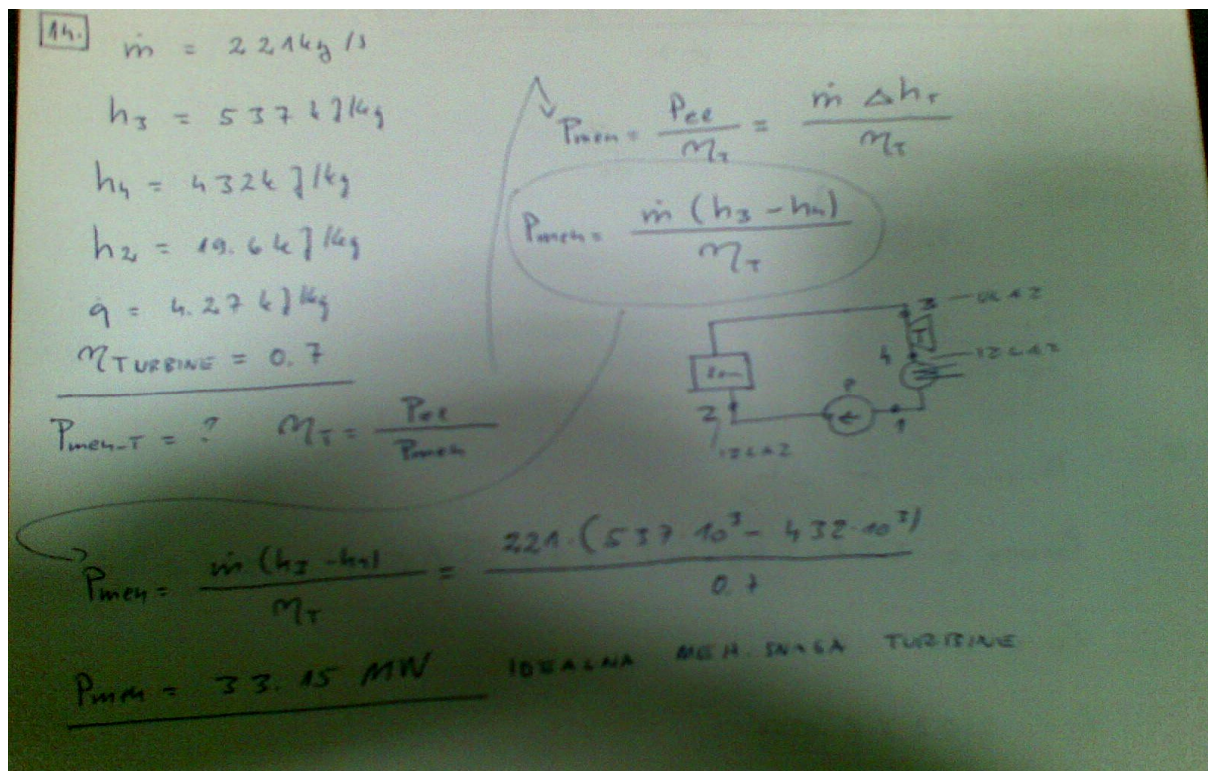 14.
ṁ = 221kg/s
h₃ = 537 kJ/kg
h₄ = 432kJ/kg
h₂ = 19.6kJ/kg
q = 4.27 kJ/kg
η TURBINE = 0.7
Pmeh-T = ? ηT = Pee / Pmeh
Pmeh = Pee / ηT = ṁ ΔhT / ηT
Pmeh = ṁ (h₃ - h₄) / ηT
3 - ULAZ
T
4 - IZLAZ
P
2
1
IZLAZ
Pmeh = ṁ (h₃ - h₄) / ηT = 221·(537·10³ - 432·10³) / 0.7
Pmeh = 33.15 MW IDEALNA MEH. SNAGA TURBINE